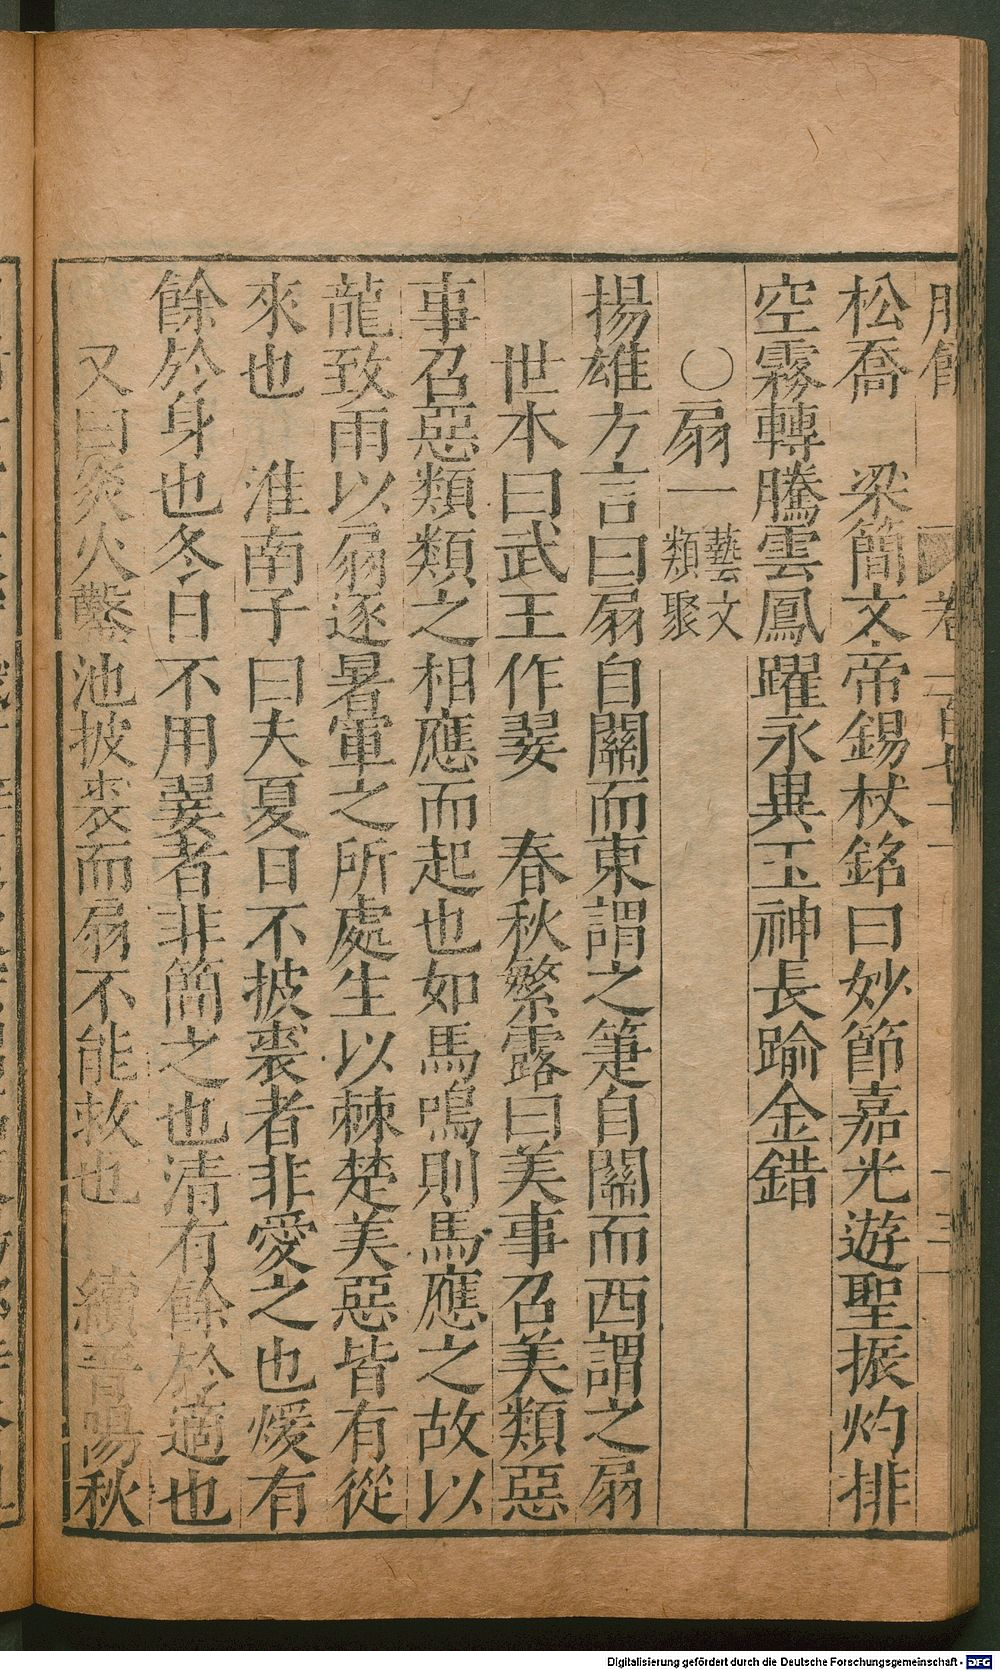 松喬　梁簡文帝錫杖銘曰妙節嘉光遊聖振灼排
空霧轉騰雲鳳躍永異玉神長踰金錯
〇扇一　藝文類聚
揚雄方言曰扇自關而東謂之箑自關而西謂之扇
世本曰武王作翣　春秋繁露曰美事召美類惡
事召惡類類之相應而起也如馬鳴則馬應之故以
龍致雨以扇逐暑軍之所處生以棘楚美惡皆有從
來也　淮南子曰夫夏日不披裘者非愛之也煖有
餘於身也冬日不用翣者非簡之也清有餘於適也
又曰炎火鑿池披裘而扇不能救也　續晉陽秋
Digitalisierung gefördert durch die Deutsche Forschungsgemeinschaft - DFG